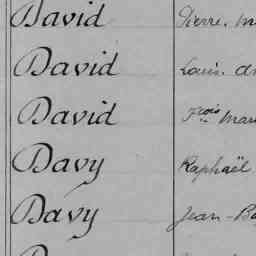 David Pierre, M
David Louis. An
David Fçois Mar
Davy Raphaël
Davy Jean-Ba